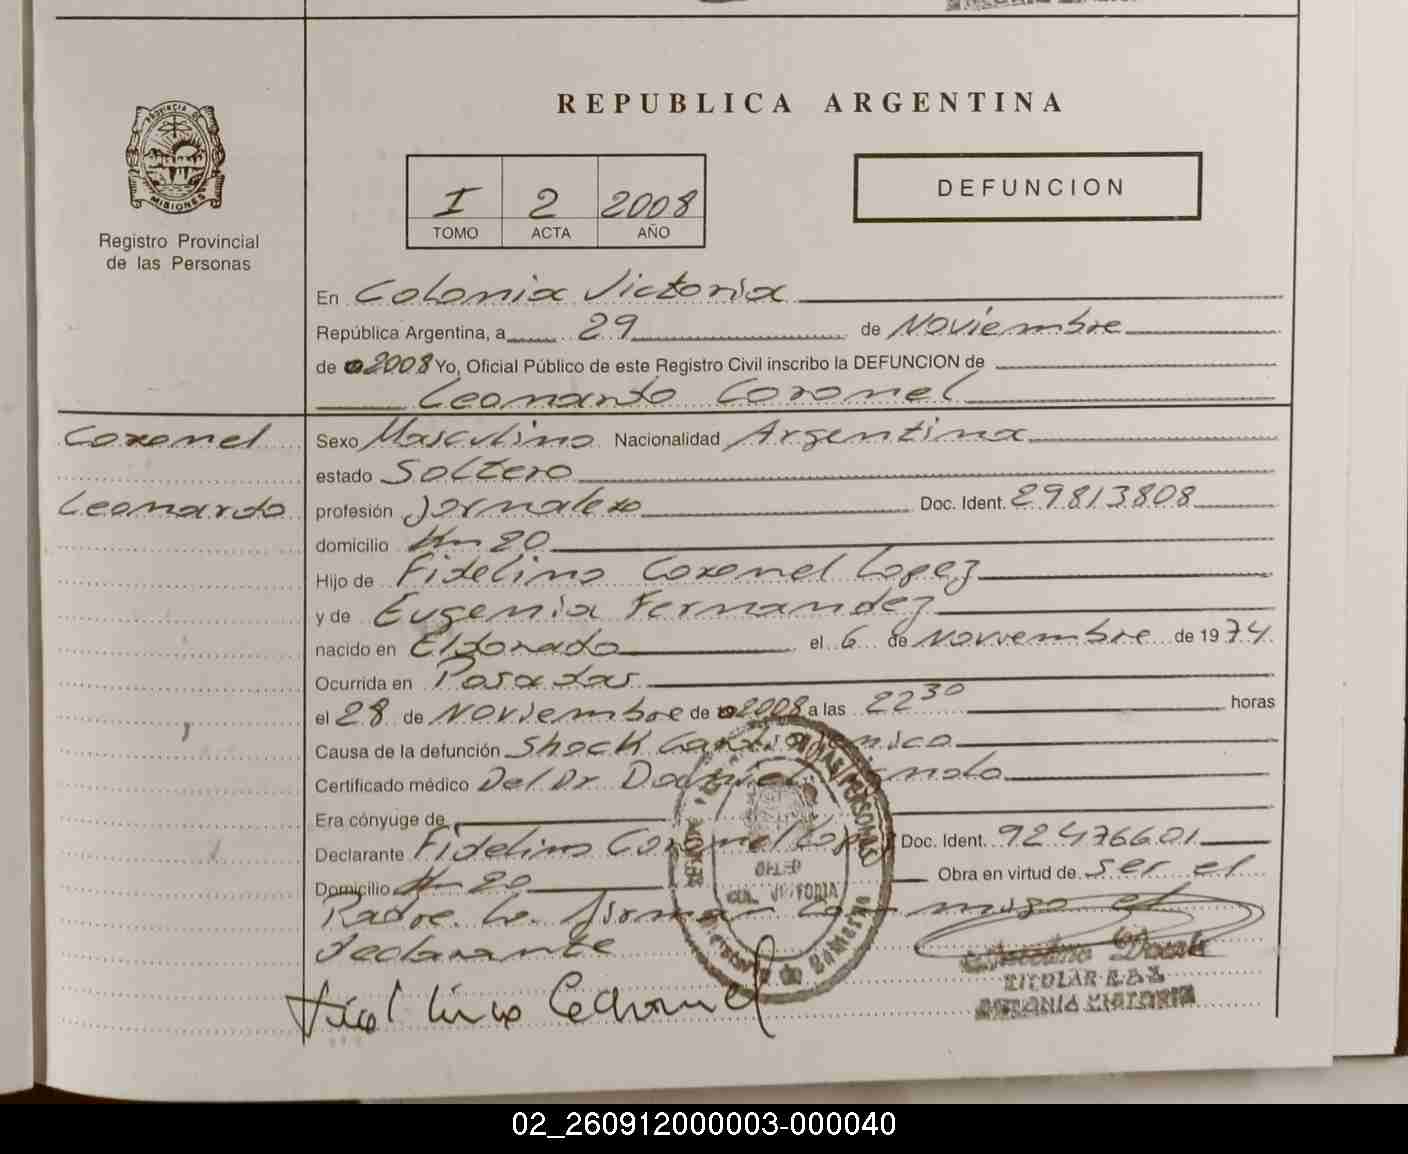 REPUBLICA ARGENTINA
PROVINCIA DE
MISIONES
Registro Provincial
de las Personas
I 2 2008
TOMO ACTA AÑO
DEFUNCION
En Colonia Victoria
República Argentina, a 29 de Noviembre
de 2008 Yo, Oficial Público de este Registro Civil inscribo la DEFUNCION de
Leonardo Coronel
Coronel
Leonardo
Sexo Masculino Nacionalidad Argentina
estado Soltero
profesión Jornalero Doc. Ident. 29813808
domicilio Km 20
Hijo de Fidelino Coronel Lopez
y de Eugenia Fernandez
nacido en Eldorado el 6 de Noviembre de 1974
Ocurrida en Posadas
el 28 de Noviembre de 2008 a las 22 30 horas
Causa de la defunción Shock
Certificado médico Del Dr
Era cónyuge de
Declarante Fidelino Coronel Lopez Doc. Ident. 92476601
Domicilio Km 20 Obra en virtud de ser el
Padre. Lo firma con migo el
declarante
DELEG
COL. VICTORIA
TITULAR
COLONIA VICTORIA
02_260912000003-000040